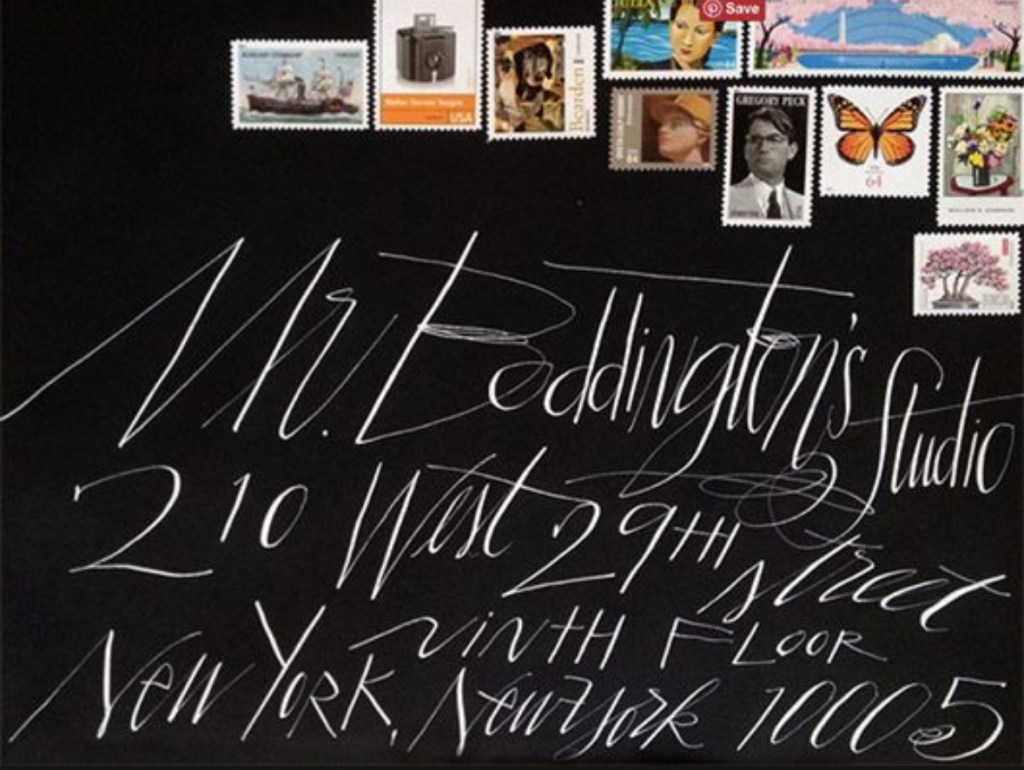 Save
USA
Bearden
GREGORY PECK
64
Mr. Boddington's Studio
210 West 29TH Street
NINTH FLOOR
New York, New York 10005